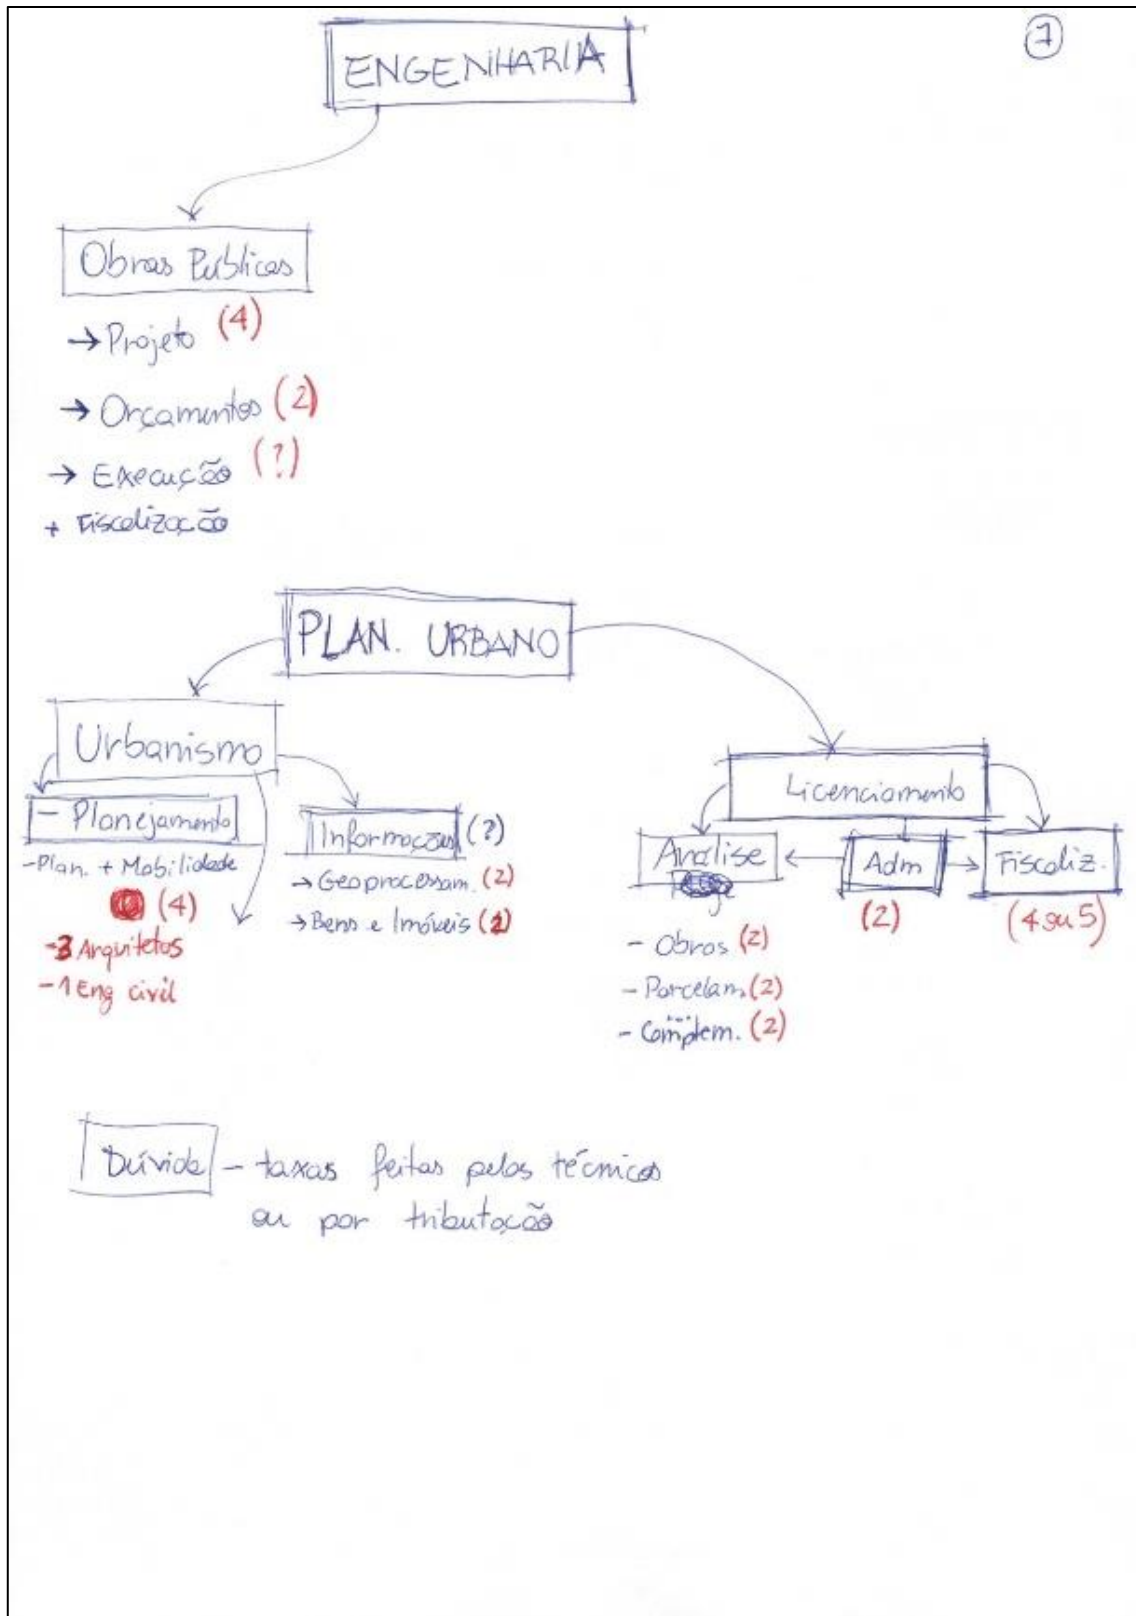 7
ENGENHARIA
Obras Públicas
→ Projeto (4)
→ Orçamentos (2)
→ Execução (?)
+ Fiscalização
PLAN. URBANO
Urbanismo
- Planejamento
- Plan. + Mobilidade
(4)
- 3 Arquitetos
- 1 Eng civil
Informações (?)
→ Geoprocessam. (2)
→ Bens e Imóveis (2)
Licenciamento
Análise ← Adm → Fiscaliz.
(2) (4 ou 5)
- Obras (2)
- Parcelam. (2)
- Complem. (2)
Dúvida - taxas feitas pelos técnicos
ou por tributação